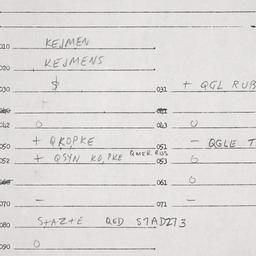 010 KEJMEN
020 KEJMENS
030 $ 031 + QGL RUB
040 + 041
042 0 043 0
050 + QKOPKE 051 - QGLE T
052 + QSYN KO,PKE QMER RUS 053 0
060 061 0
070 - 071 -
080 S+AZ+E QGD STADZT3
090 0